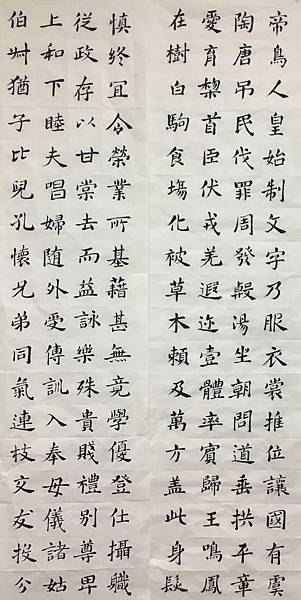 帝鳥人皇始制文字乃服衣裳推位讓國有虞
陶唐吊民伐罪周發殷湯坐朝問道垂拱平章
愛育黎首臣伏戎羌遐迩壹體率賓歸王鳴鳳
在樹白駒食場化被草木賴及萬方盖此身髮
慎終宜令榮業所基藉甚無竟學優登仕攝職
從政存以甘棠去而益詠樂殊貴賤禮別尊卑
上和下睦夫唱婦随外受傅訓入奉母儀諸姑
伯叔猶子比兒孔懷兄弟同氣連枝交友投分